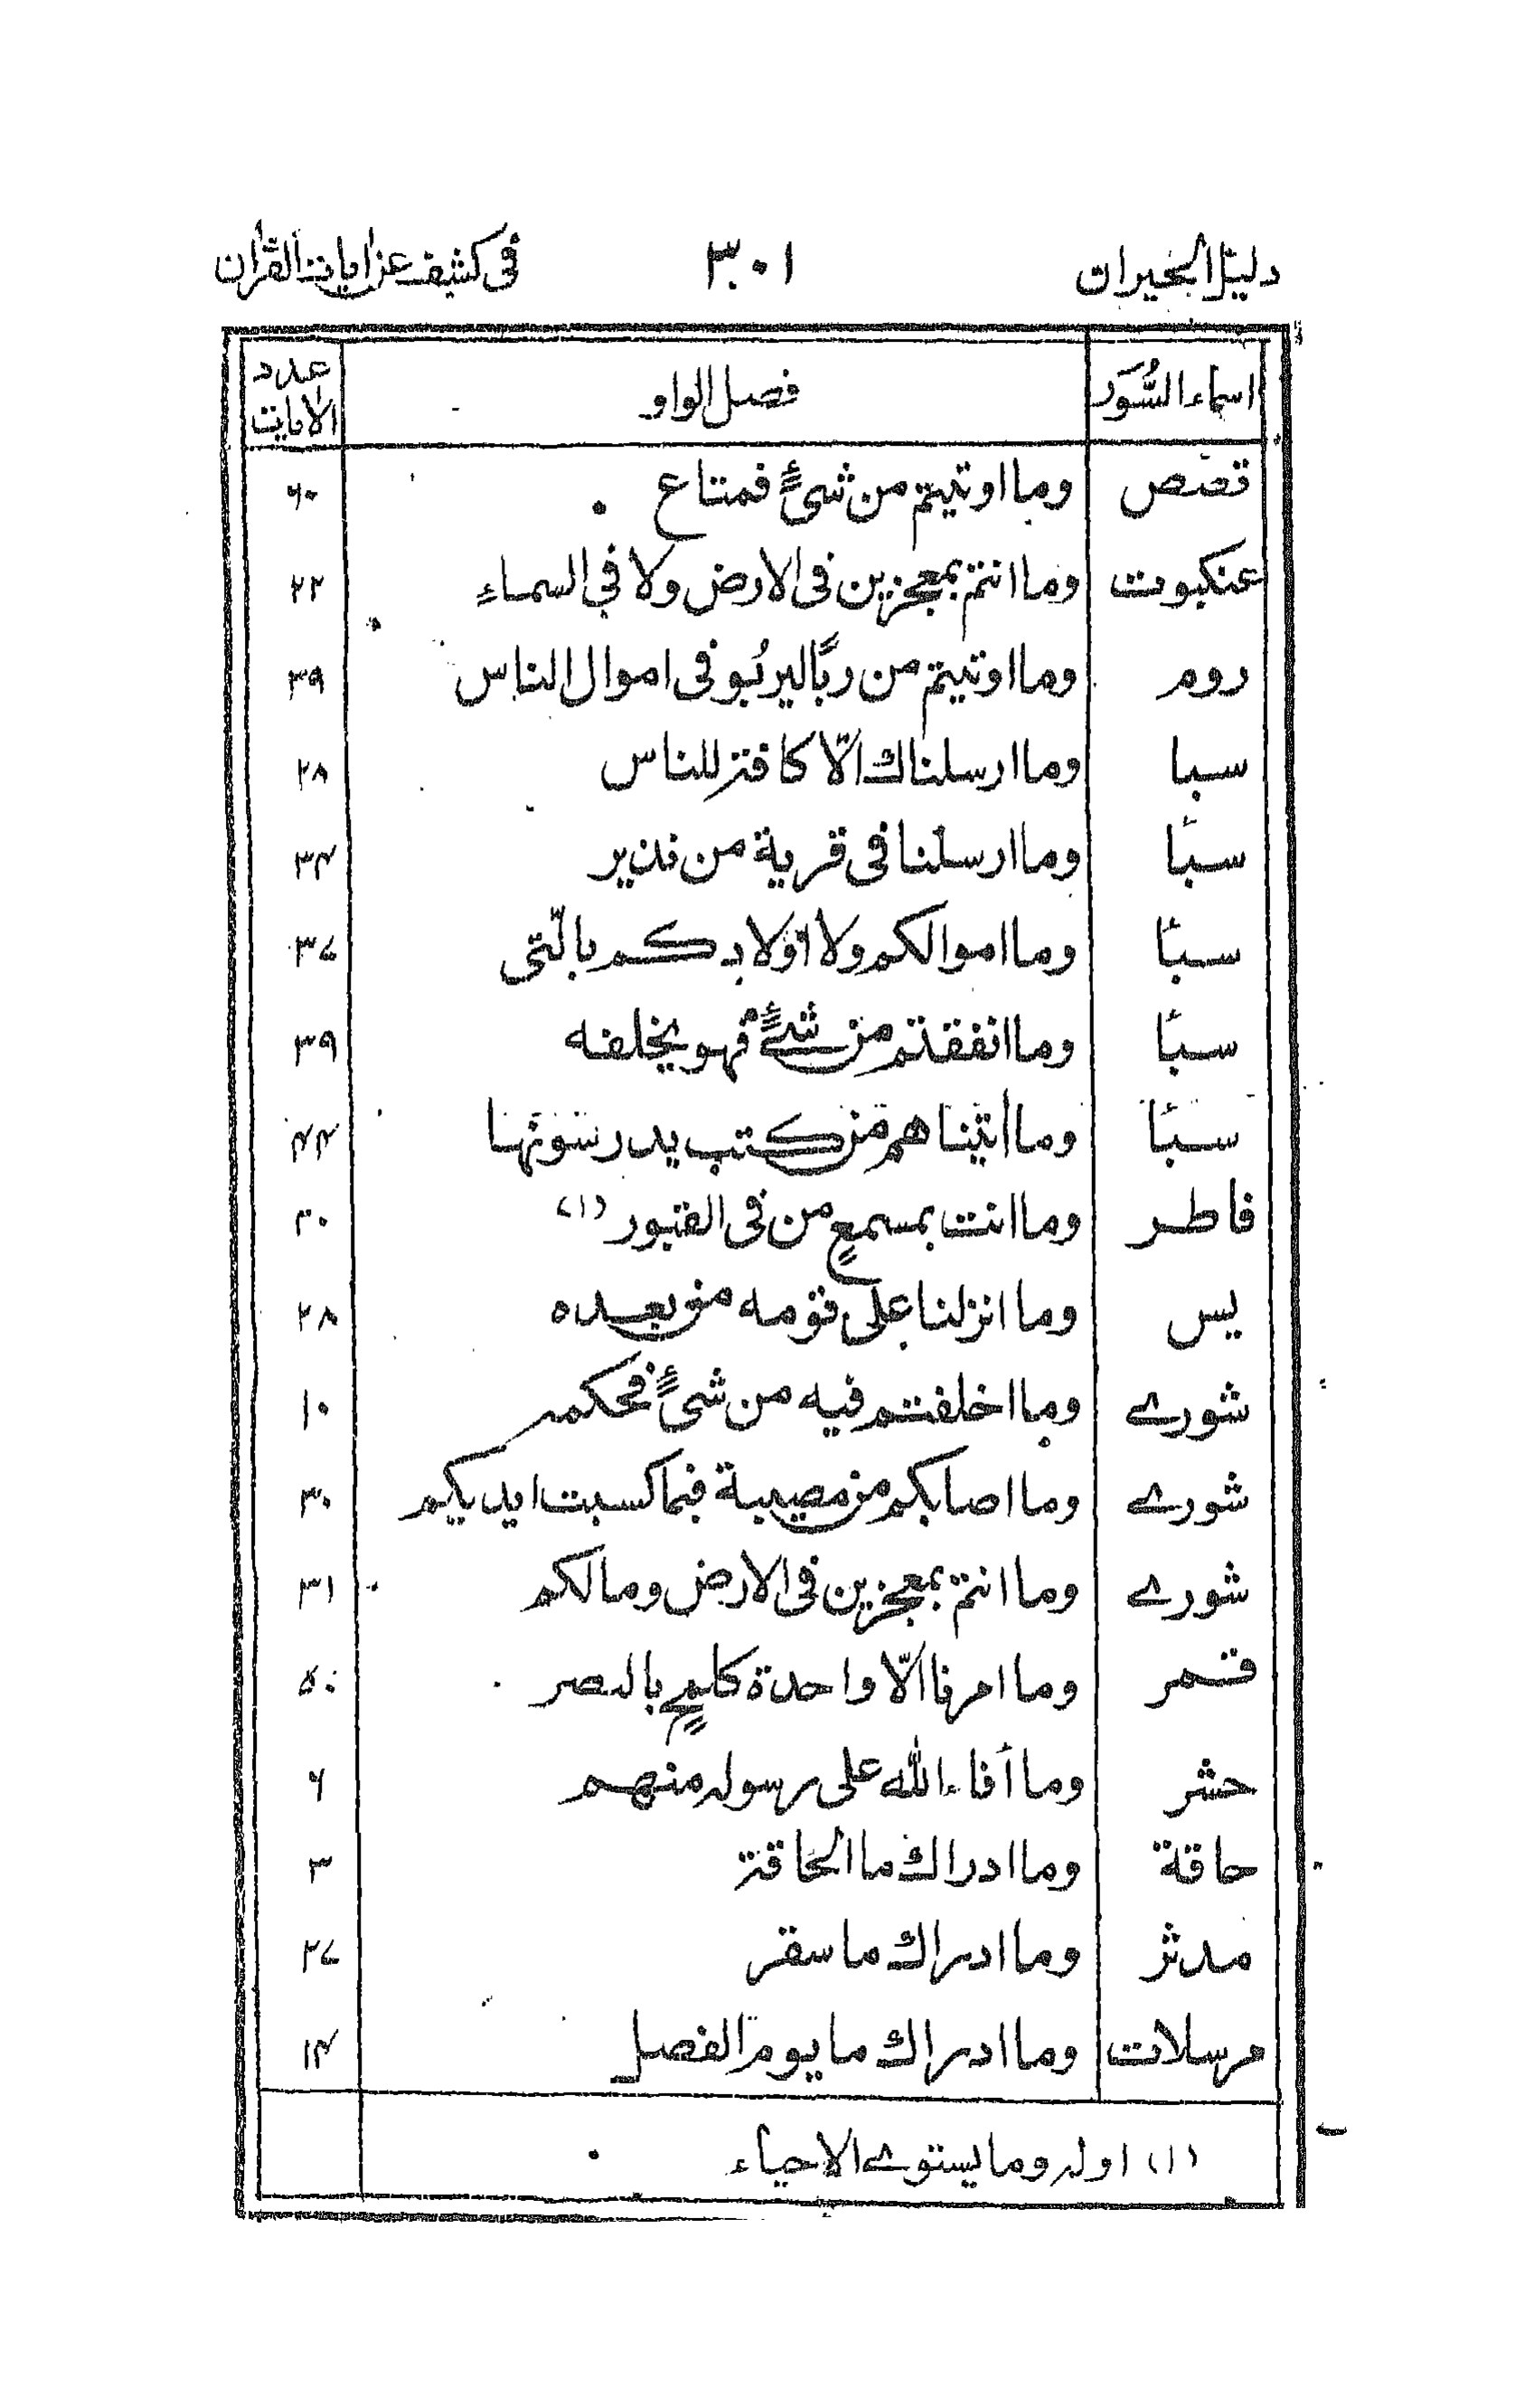 دليل الحيران ٣٠١ فى كشف عن اٰيات القراٰن
اسماء السُّوَر فصل الواو عدد الاٰيات
قصص وما اوتيتم من شىءٍ فمتاع ٦٠
عنكبوت وما انتم بمعجزين فى الارض ولا فى السماءِ ٢٢
روم وما اوتيتم من ربًا ليربُو فى اموال الناس ٣٩
سبا وما ارسلناك الّا كافة للناس ٢٨
سبأ وما ارسلنا فى قرية من نذير ٣٤
سبأ وما اموالكم ولا اولادكم بالّتى ٣٧
سبأ وما انفقتم من شىءٍ فهو يخلفه ٣٩
سبأ وما اٰتيناهم من كتب يدرسونها ٤٤
فاطر وما انت بمسمعٍ من فى القبور (١) ٢٠
يس وما انزلنا على قومه من بعده ٢٨
شورے وما اخلفتم فيه من شىءٍ فحكمه ١٠
شورے وما اصابكم من مصيبة فبما كسبت ايديكم ٣٠
شورے وما انتم بمعجزين فى الارض ومالكم ٣١
قمر وما امرنا الّا واحدة كلمحٍ بالبصر ٥٠
حشر وما أفاء الله على رسوله منهم ٦
حاقة وما ادراك ما الحاقة ٣
مدثر وما ادراك ما سقر ٢٧
مرسلات وما ادراك ما يوم الفصل ١٤
(١) اوله وما يستوے الاحياء